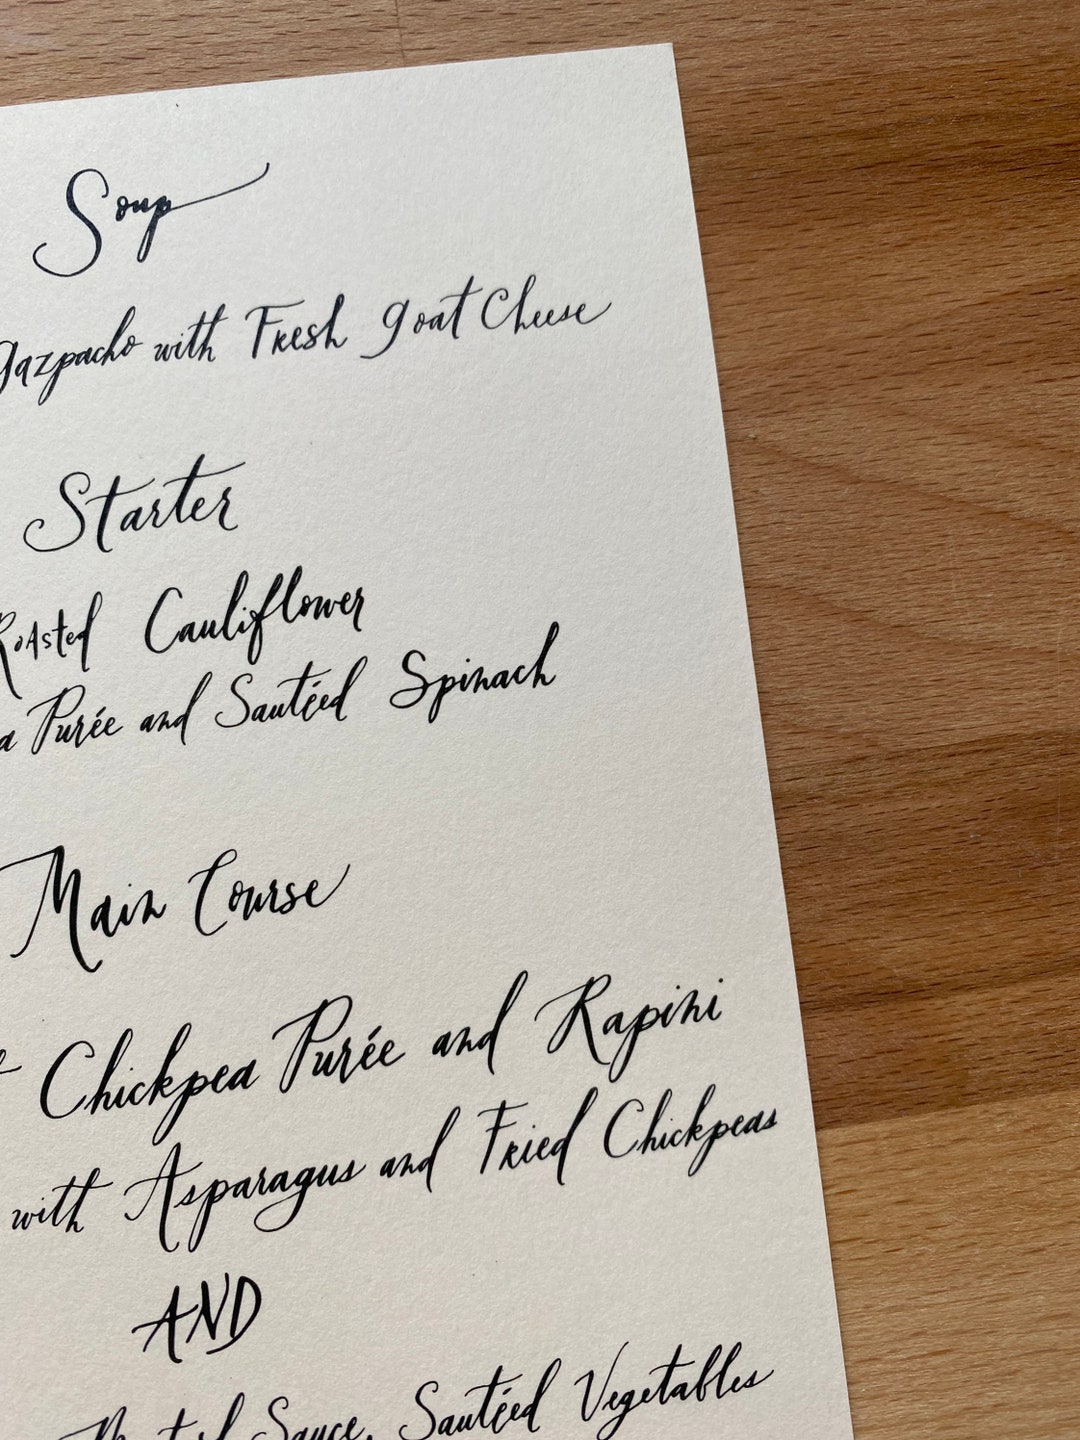 Soup
gazpacho with Fresh goat Cheese
Starter
Roasted Cauliflower
Purée and Sautéed Spinach
Main Course
Chickpea Purée and Rapini
with Asparagus and Fried Chickpeas
AND
Sauce, Sautéed Vegetables